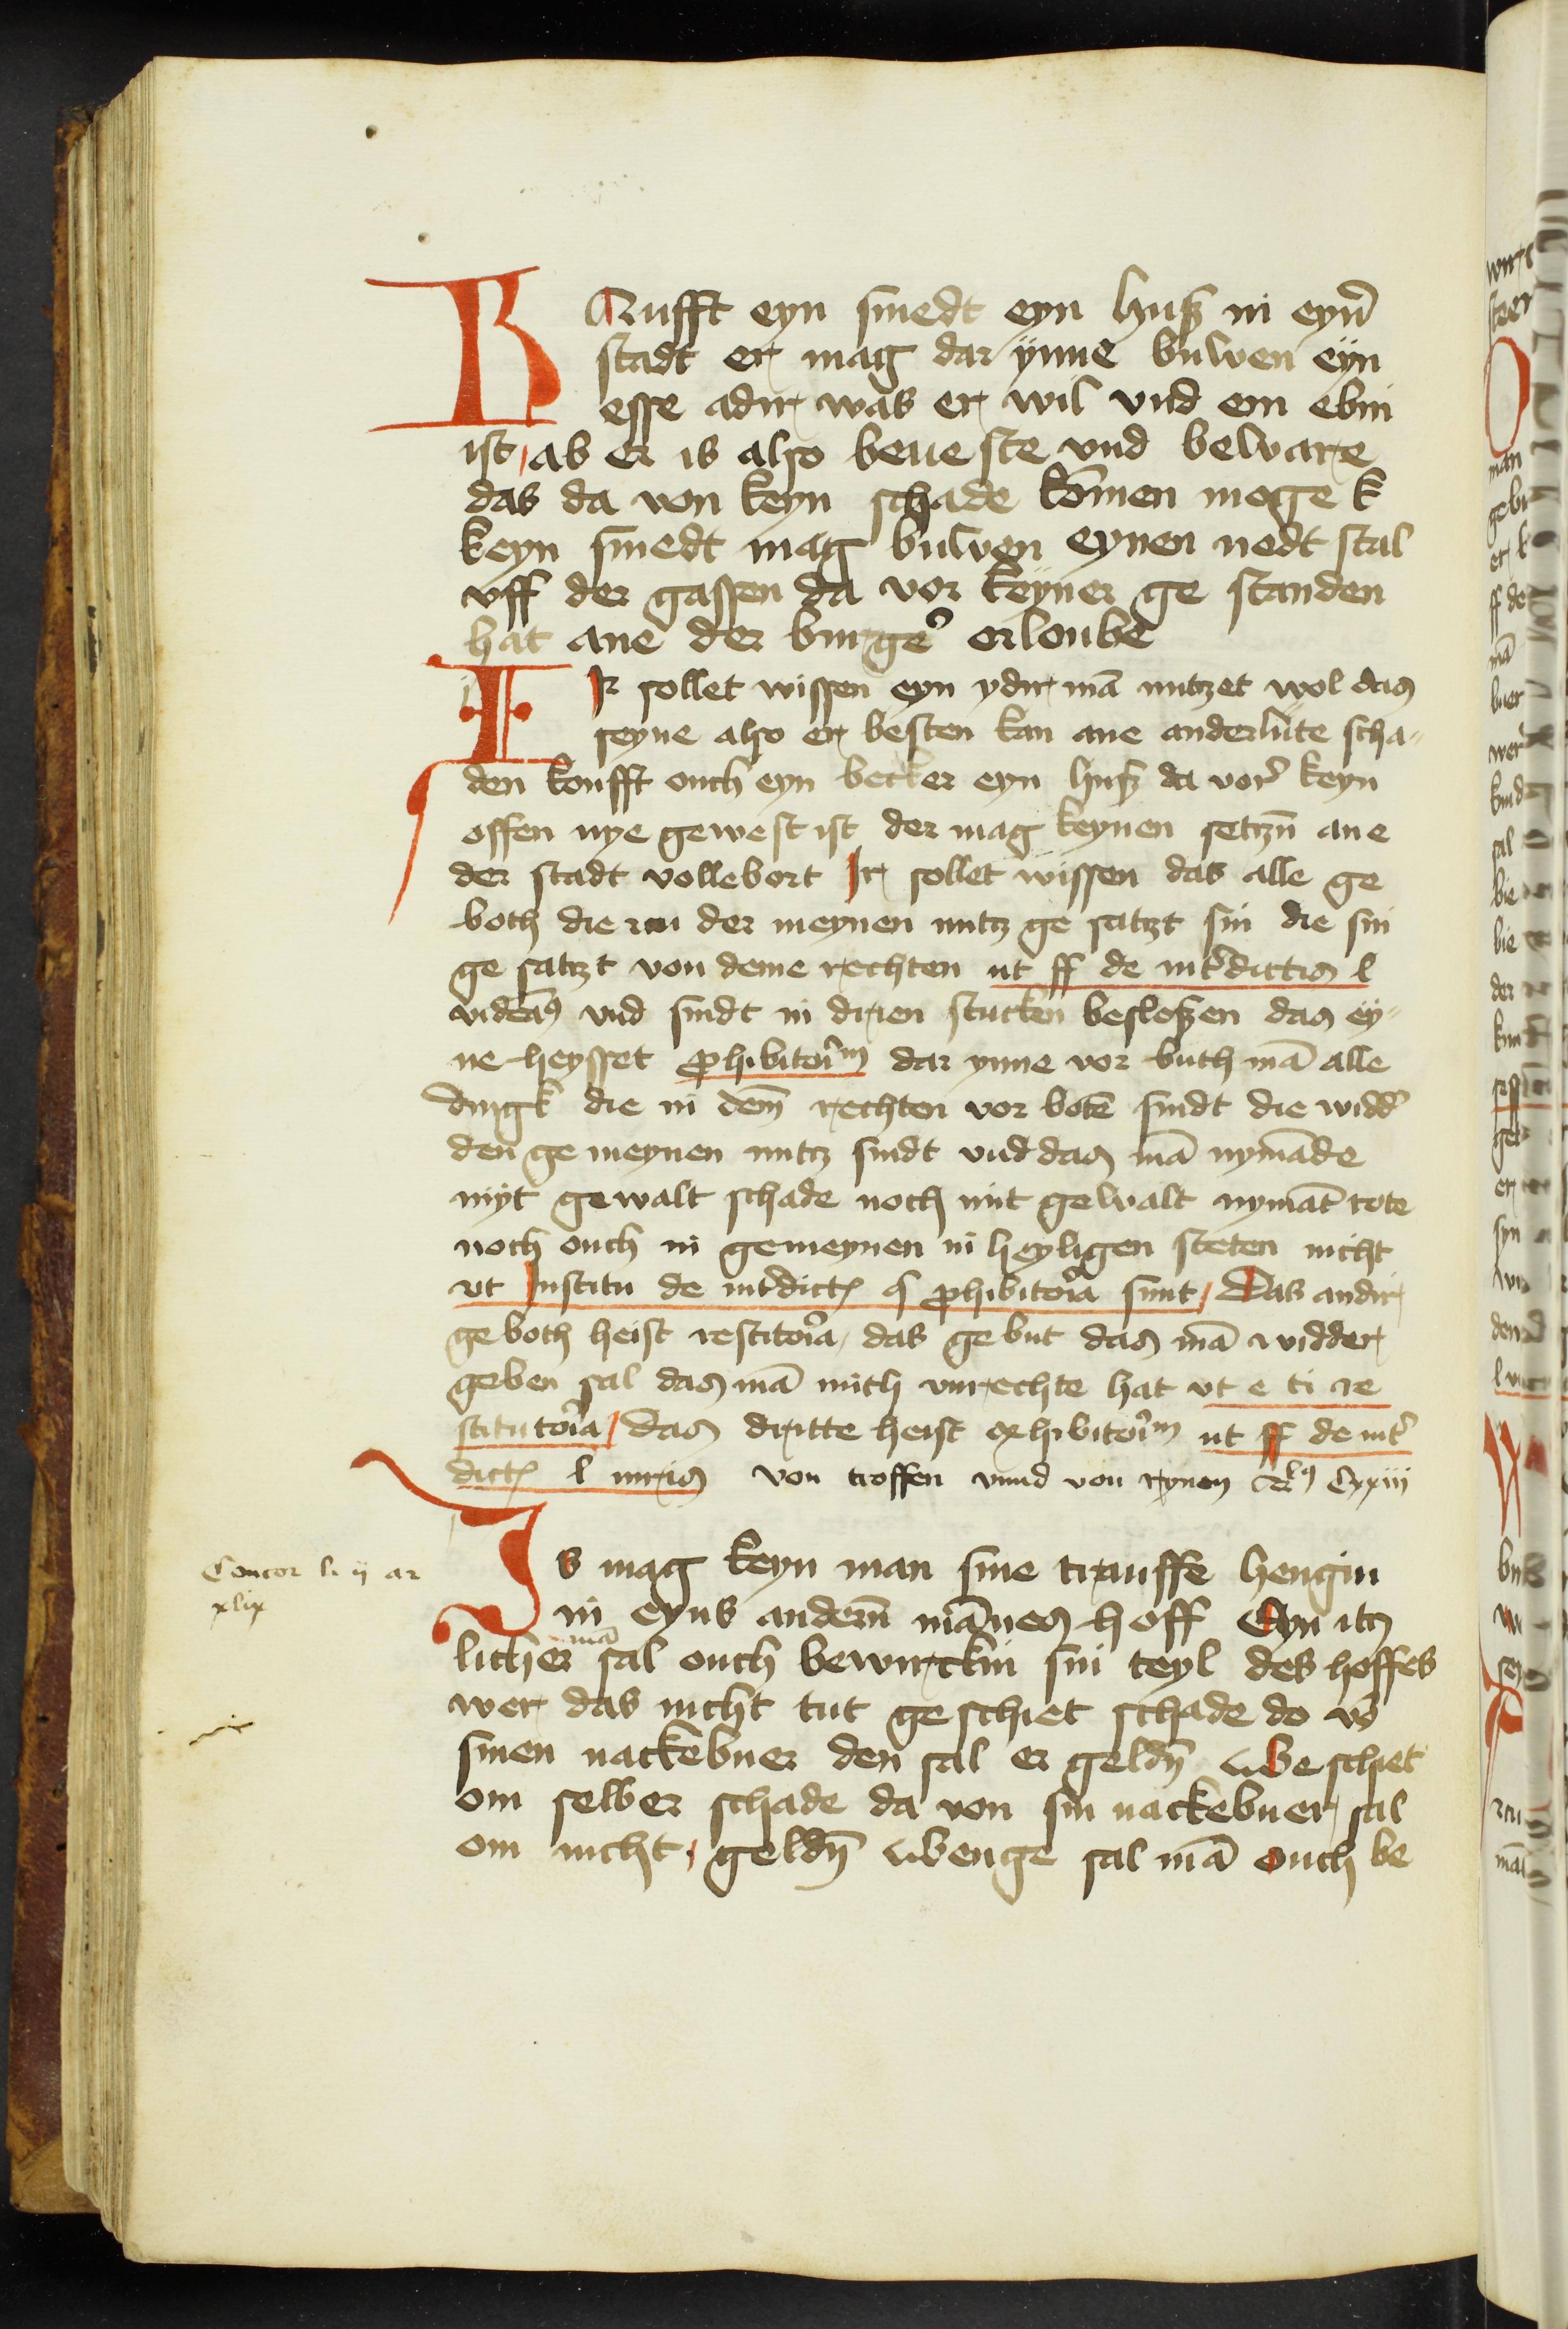 KAufft eyn smedt eyn husz in eyn͛
stadt er mag dar ynne buwen eyn
esse adir was er wil vnd em ebin
ist / ab er is also beueste vnd beware
das da von keyn schade kōmen moge k
keyn smedt mag buwen eynen nodt stal
vff der gassen da vor keyner ge standen
hat ane der burge͛ orloube
IR sollet wissen eyn ydir mā nutzet wol das
seyne also er besten kan ane anderlute scha-
den koufft ouch eyn becker eyn husz da vor͛ keyn
offen nye gewest ist der mag keynen setzn̄ ane
der stadt vollebort Ir sollet wissen das alle ge
both die zcu der meynen nutz ge satzt sin die sin
ge satzt von deme rechten ut ff de int͛dictis l
videāꝰ vnd sindt in drien stucken beslossen das ey-
ne heysset ꝓhibitoꝛiᷠ dar ynne vor buth mā alle
dingk die in dem̄ rechten vor botē sindt die widd͛
den ge meynen nutz sindt vnd das mā nymāde
myt gewalt schade noch mit gewalt nymāt tote
noch ouch in gemeynen in heyligen steten nicht
vt Institu de int͛dict q ꝓhibitoꝛia sunt / Das andir
geboth heist restitoꝛia / das gebut das mā widder
geben sal das mā mith vnrechte hat vt e ti re
stitutoꝛia / das dritte heist exhibitoꝛiᷠ ut ff de int͛
dict l iuris von troffen vnnd von rynen Cxxiii
Is mag keyn man sine trauffe hengin
in eyns andern̄ mānes hoff Eyn itz
licher mā sal ouch bewirckin sin teyl des hoffes
wer das nicht tut geschiet schade do vō
sinen nackebuer den sal er geldn̄ Abe schiet
om selber schade da von sin nackebuer sal
om nicht / geldn̄ Abenge sal mā ouch be
Concor li ij ar
xlix